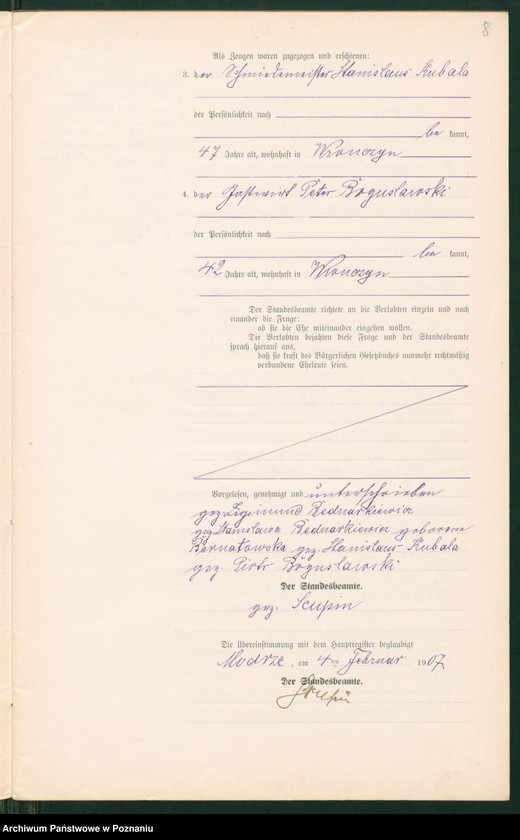 8
Als Zeugen waren zugezogen und erschienen:
3. der Schmiedemeister Stanislaus Kubala
der Persönlichkeit nach
be kannt,
47 Jahre alt, wohnhaft in Wronczyn
4. der Gastwirt Peter Boguslawski
der Persönlichkeit nach
be kannt,
42 Jahre alt, wohnhaft in Wronczyn
Der Standesbeamte richtete an die Verlobten einzeln und nach
einander die Frage:
ob sie die Ehe miteinander eingehen wollen.
Die Verlobten bejahten diese Frage und der Standesbeamte
sprach hierauf aus,
daß sie kraft des Bürgerlichen Gesetzbuches nunmehr rechtmäßig
verbundene Eheleute seien.
Vorgelesen, genehmigt und unterschrieben
gez. Zigimund Bednarkiewicz
gez. Stanislawa Bednarkiewicz geborene
Bernatowska gez. Stanislaus Kubala
gez. Piotr Boguslawski
Der Standesbeamte.
gez. Scupin
Die Übereinstimmung mit dem Hauptregister beglaubigt
Modrze, am 4ten Februar 1907.
Der Standesbeamte.
Scupin
Archiwum Państwowe w Poznaniu